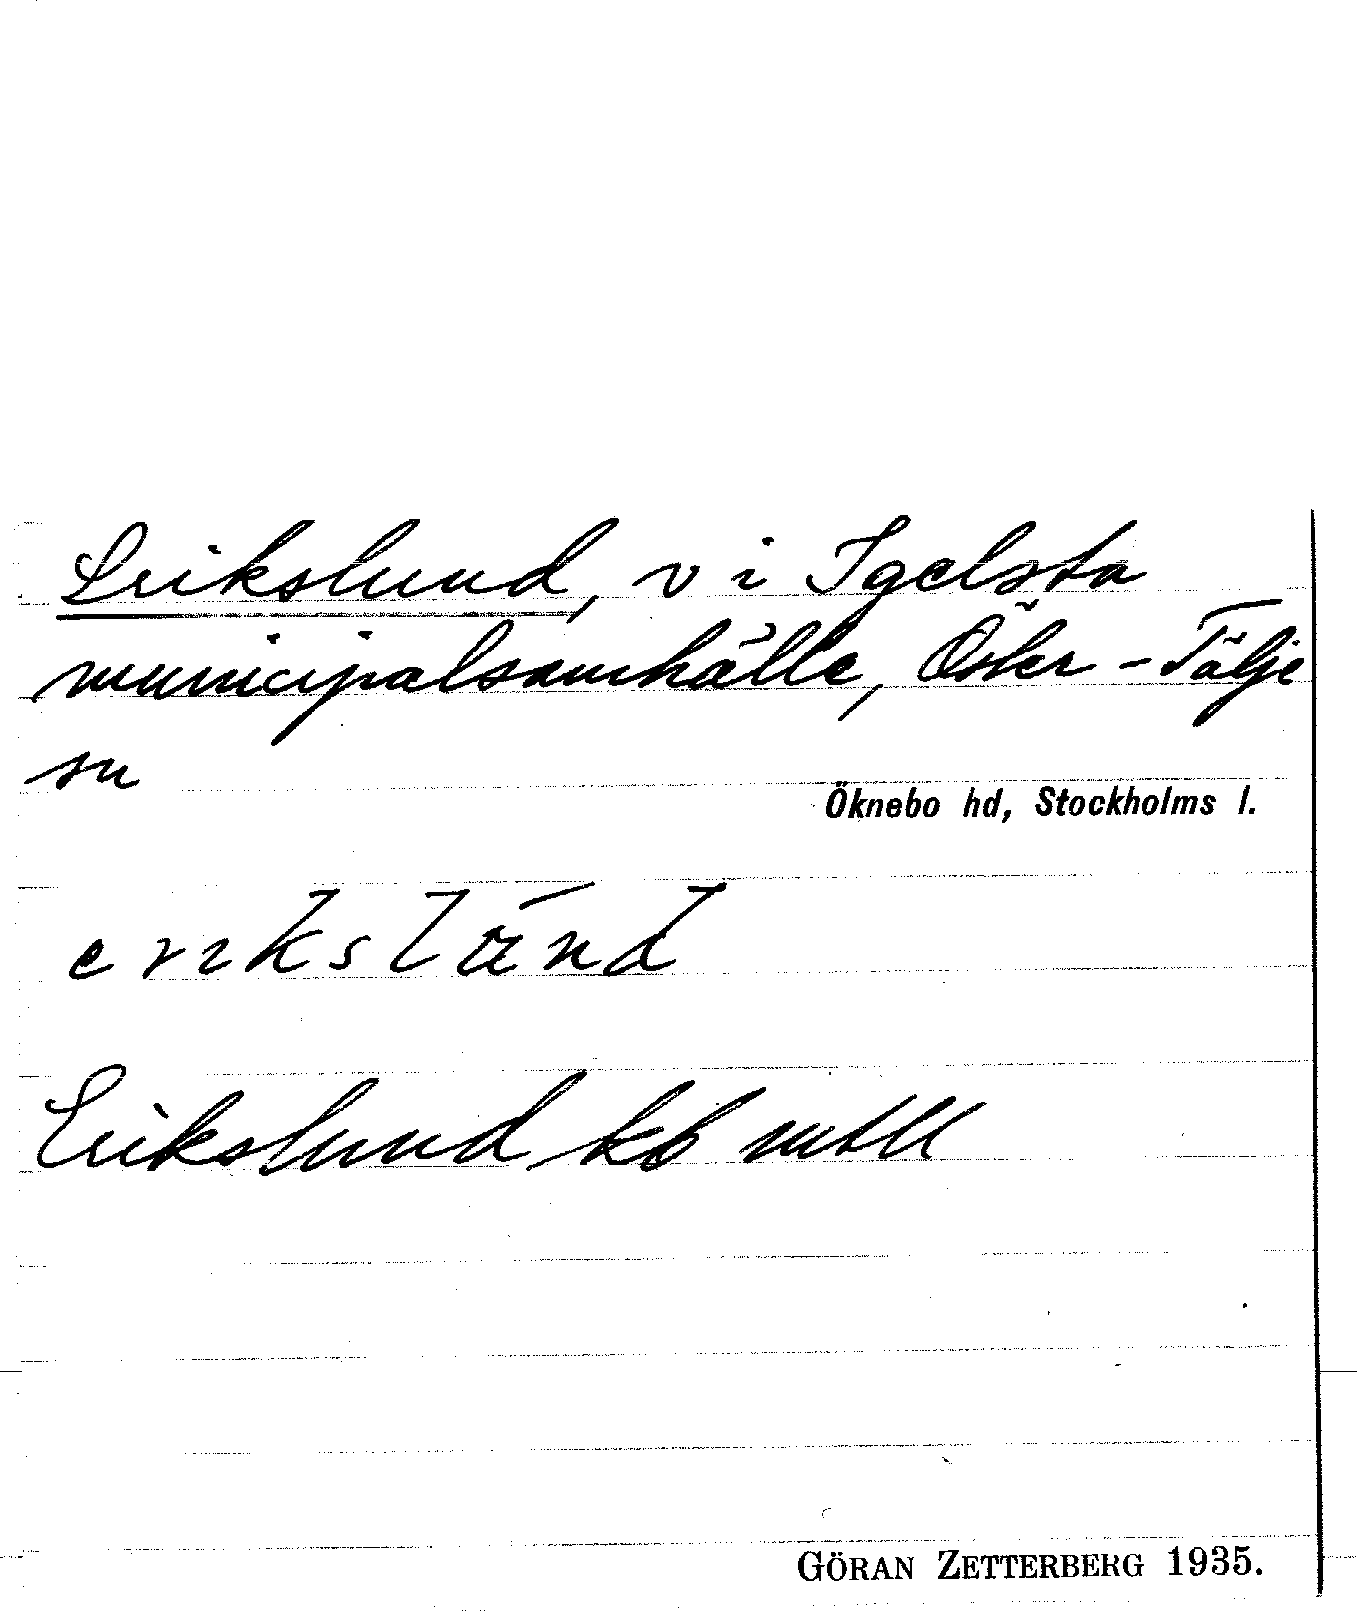 Erikslund, v i Igelsta
municipalsamhälle, Öster-Tälje
sn
Öknebo hd, Stockholms l.
erikslànd
Erikslund kb mtll
GÖRAN ZETTERBERG 1935.